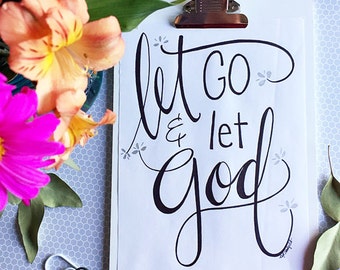 let GO
& let
God